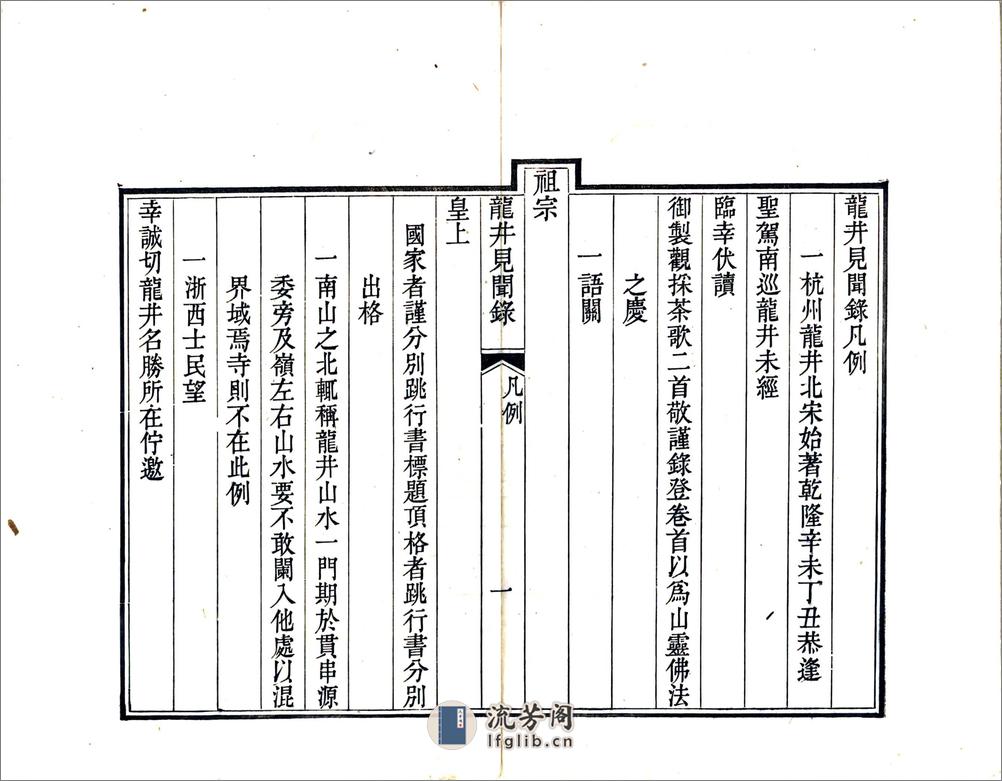 龍井見聞錄凡例
一杭州龍井北宋始著乾隆辛未丁丑恭逢
聖駕南巡龍井未經
臨幸伏讀
御製觀採茶歌二首敬謹錄登卷首以爲山靈佛法
之慶
一語關
祖宗
龍井見聞錄 凡例 一
皇上
國家者謹分別跳行書標題頂格者跳行書分別
出格
一南山之北輒稱龍井山水一門期於貫串源
委旁及嶺左右山水要不敢闌入他處以混
界域焉寺則不在此例
一浙西士民望
幸誠切龍井名勝所在佇邀
流芳阁
lfglib.cn